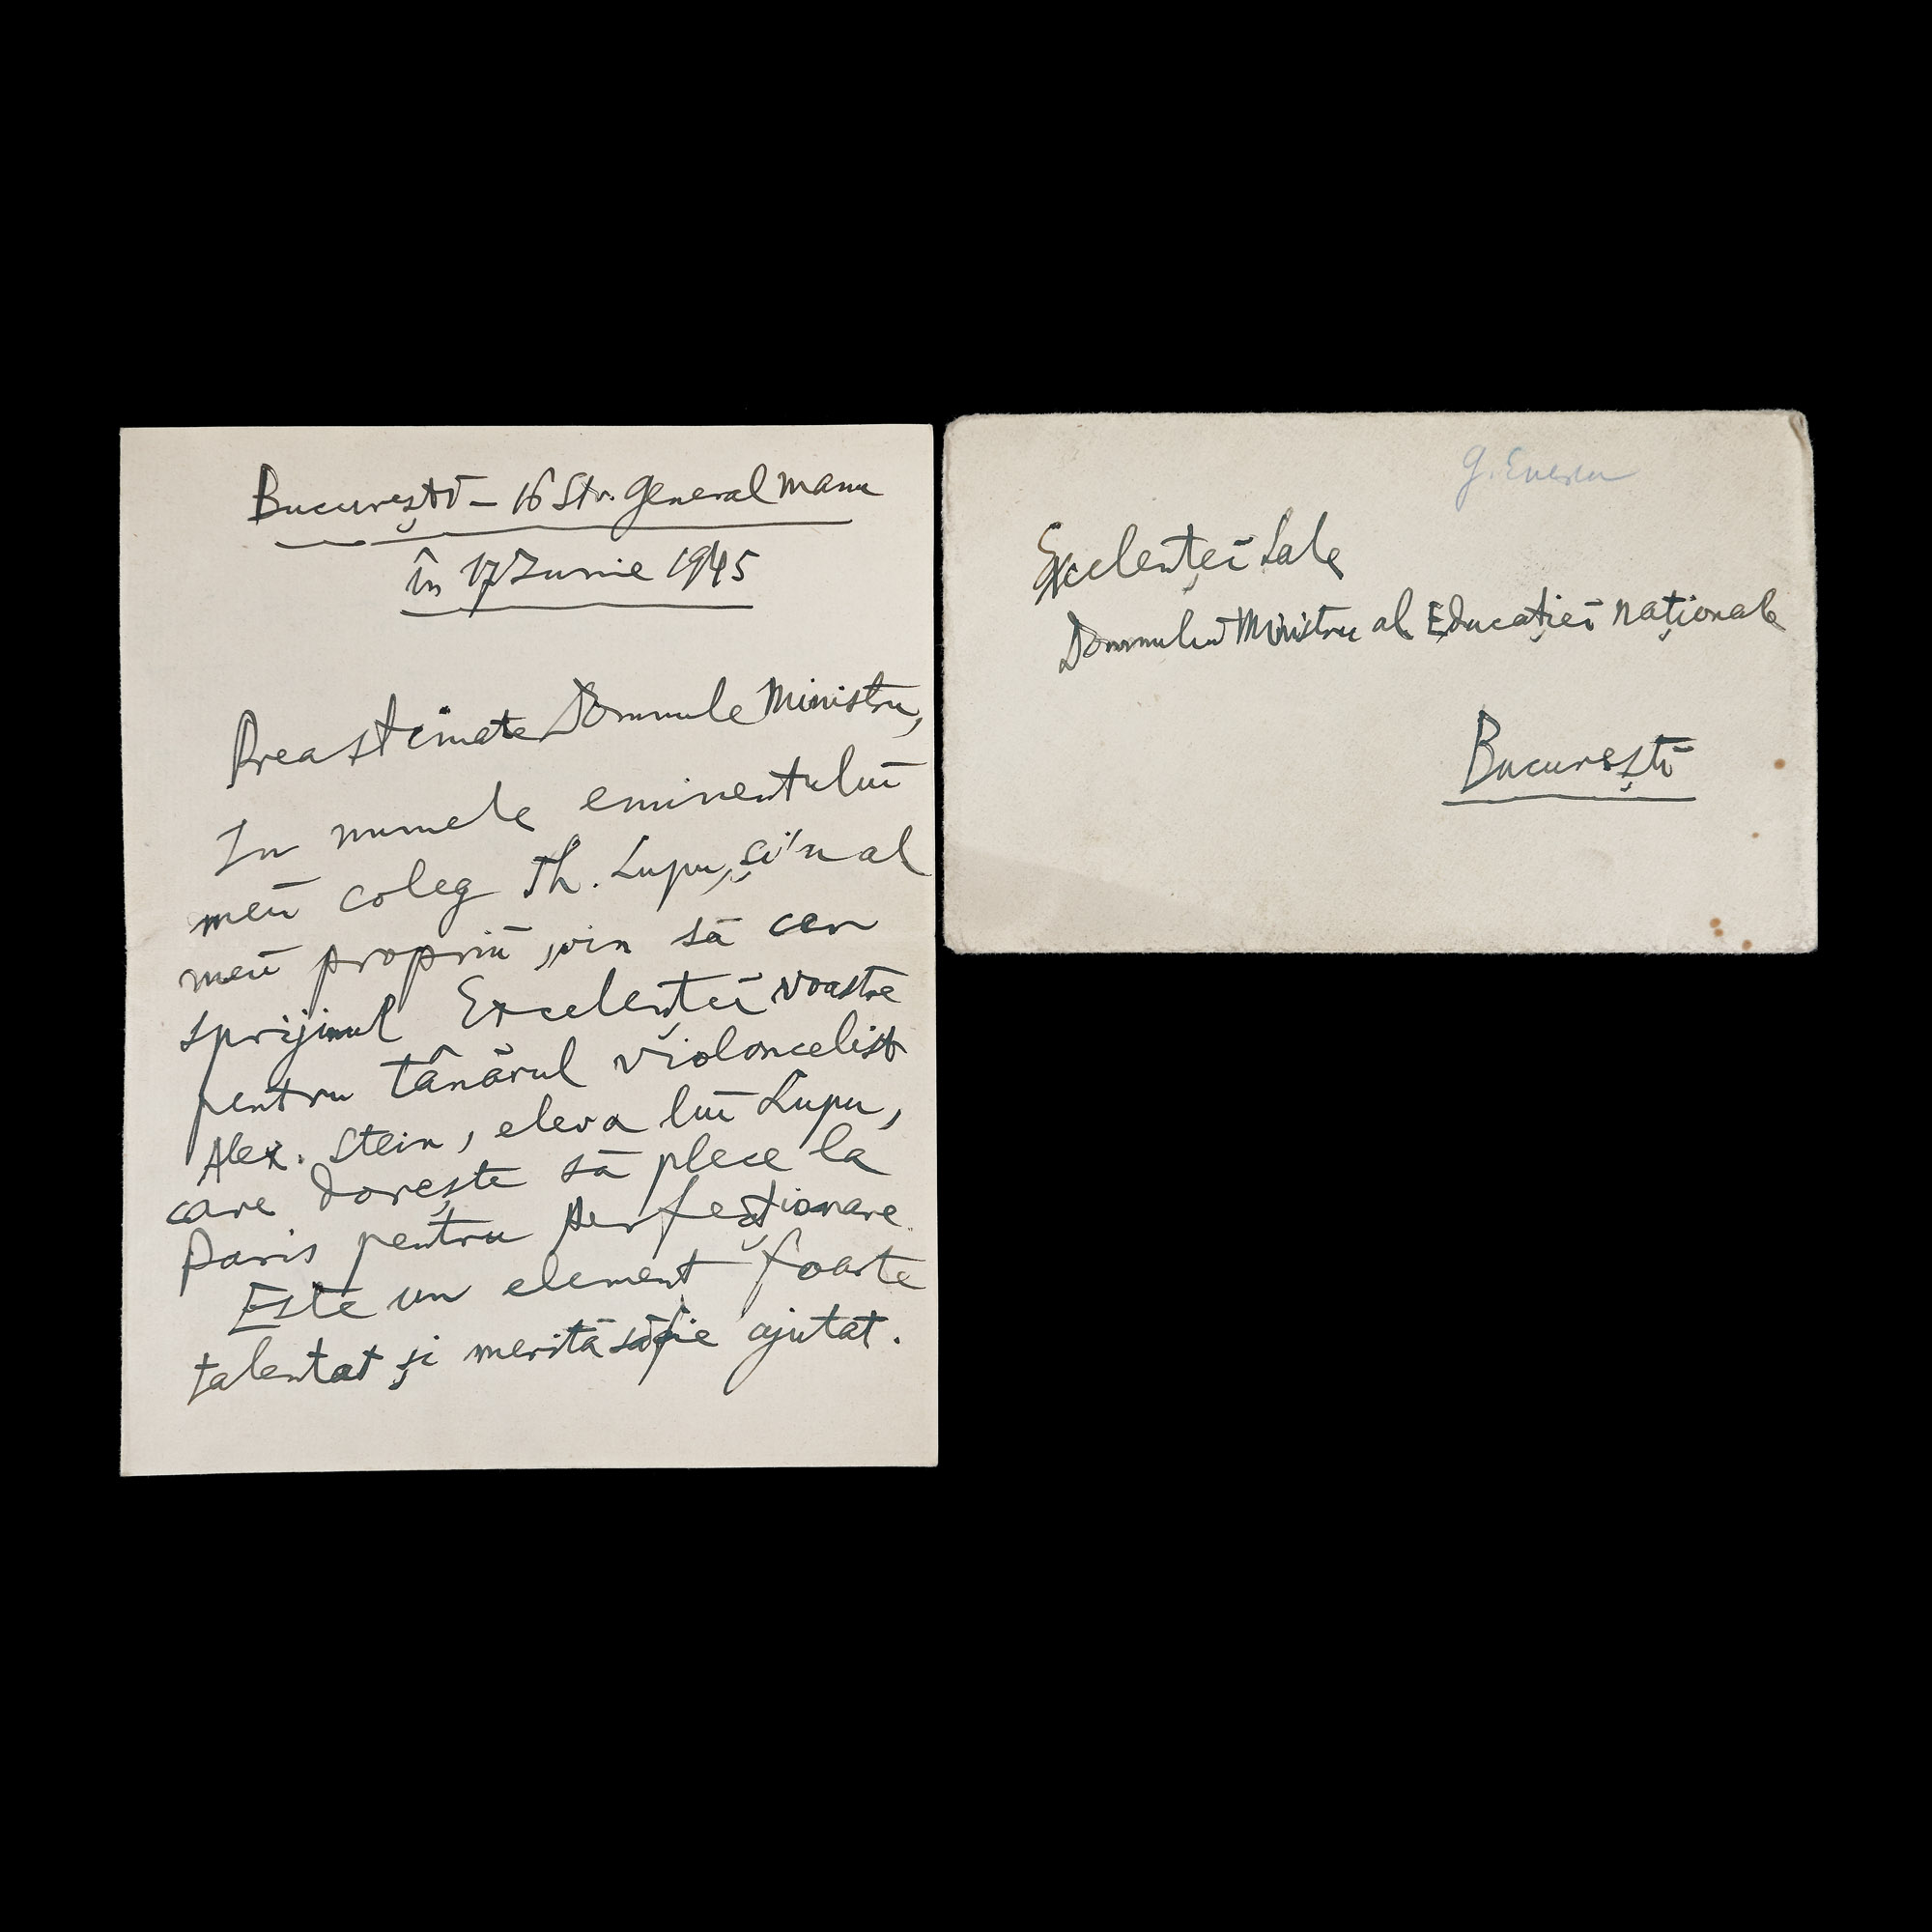 Bucureștĭ – 16 Str. General Manu
în 17 Iunie 1945
Preastimate Domnule Ministru,
In numele eminentuluĭ
meŭ coleg Th. Lupu, și'n al
meŭ propriŭ, vin să cer
sprijinul Excelențeĭ Voastre
pentru tânărul violoncelist
Alex. Stein, eleva luĭ Lupu,
care dorește să plece la
Paris pentru perfecționare.
Este un element foarte
talentat și merită să fie ajutat.
G. Enescu
Excelențeĭ Sale
Domnuluĭ Ministru al Educațieĭ Naționale
Bucureștĭ